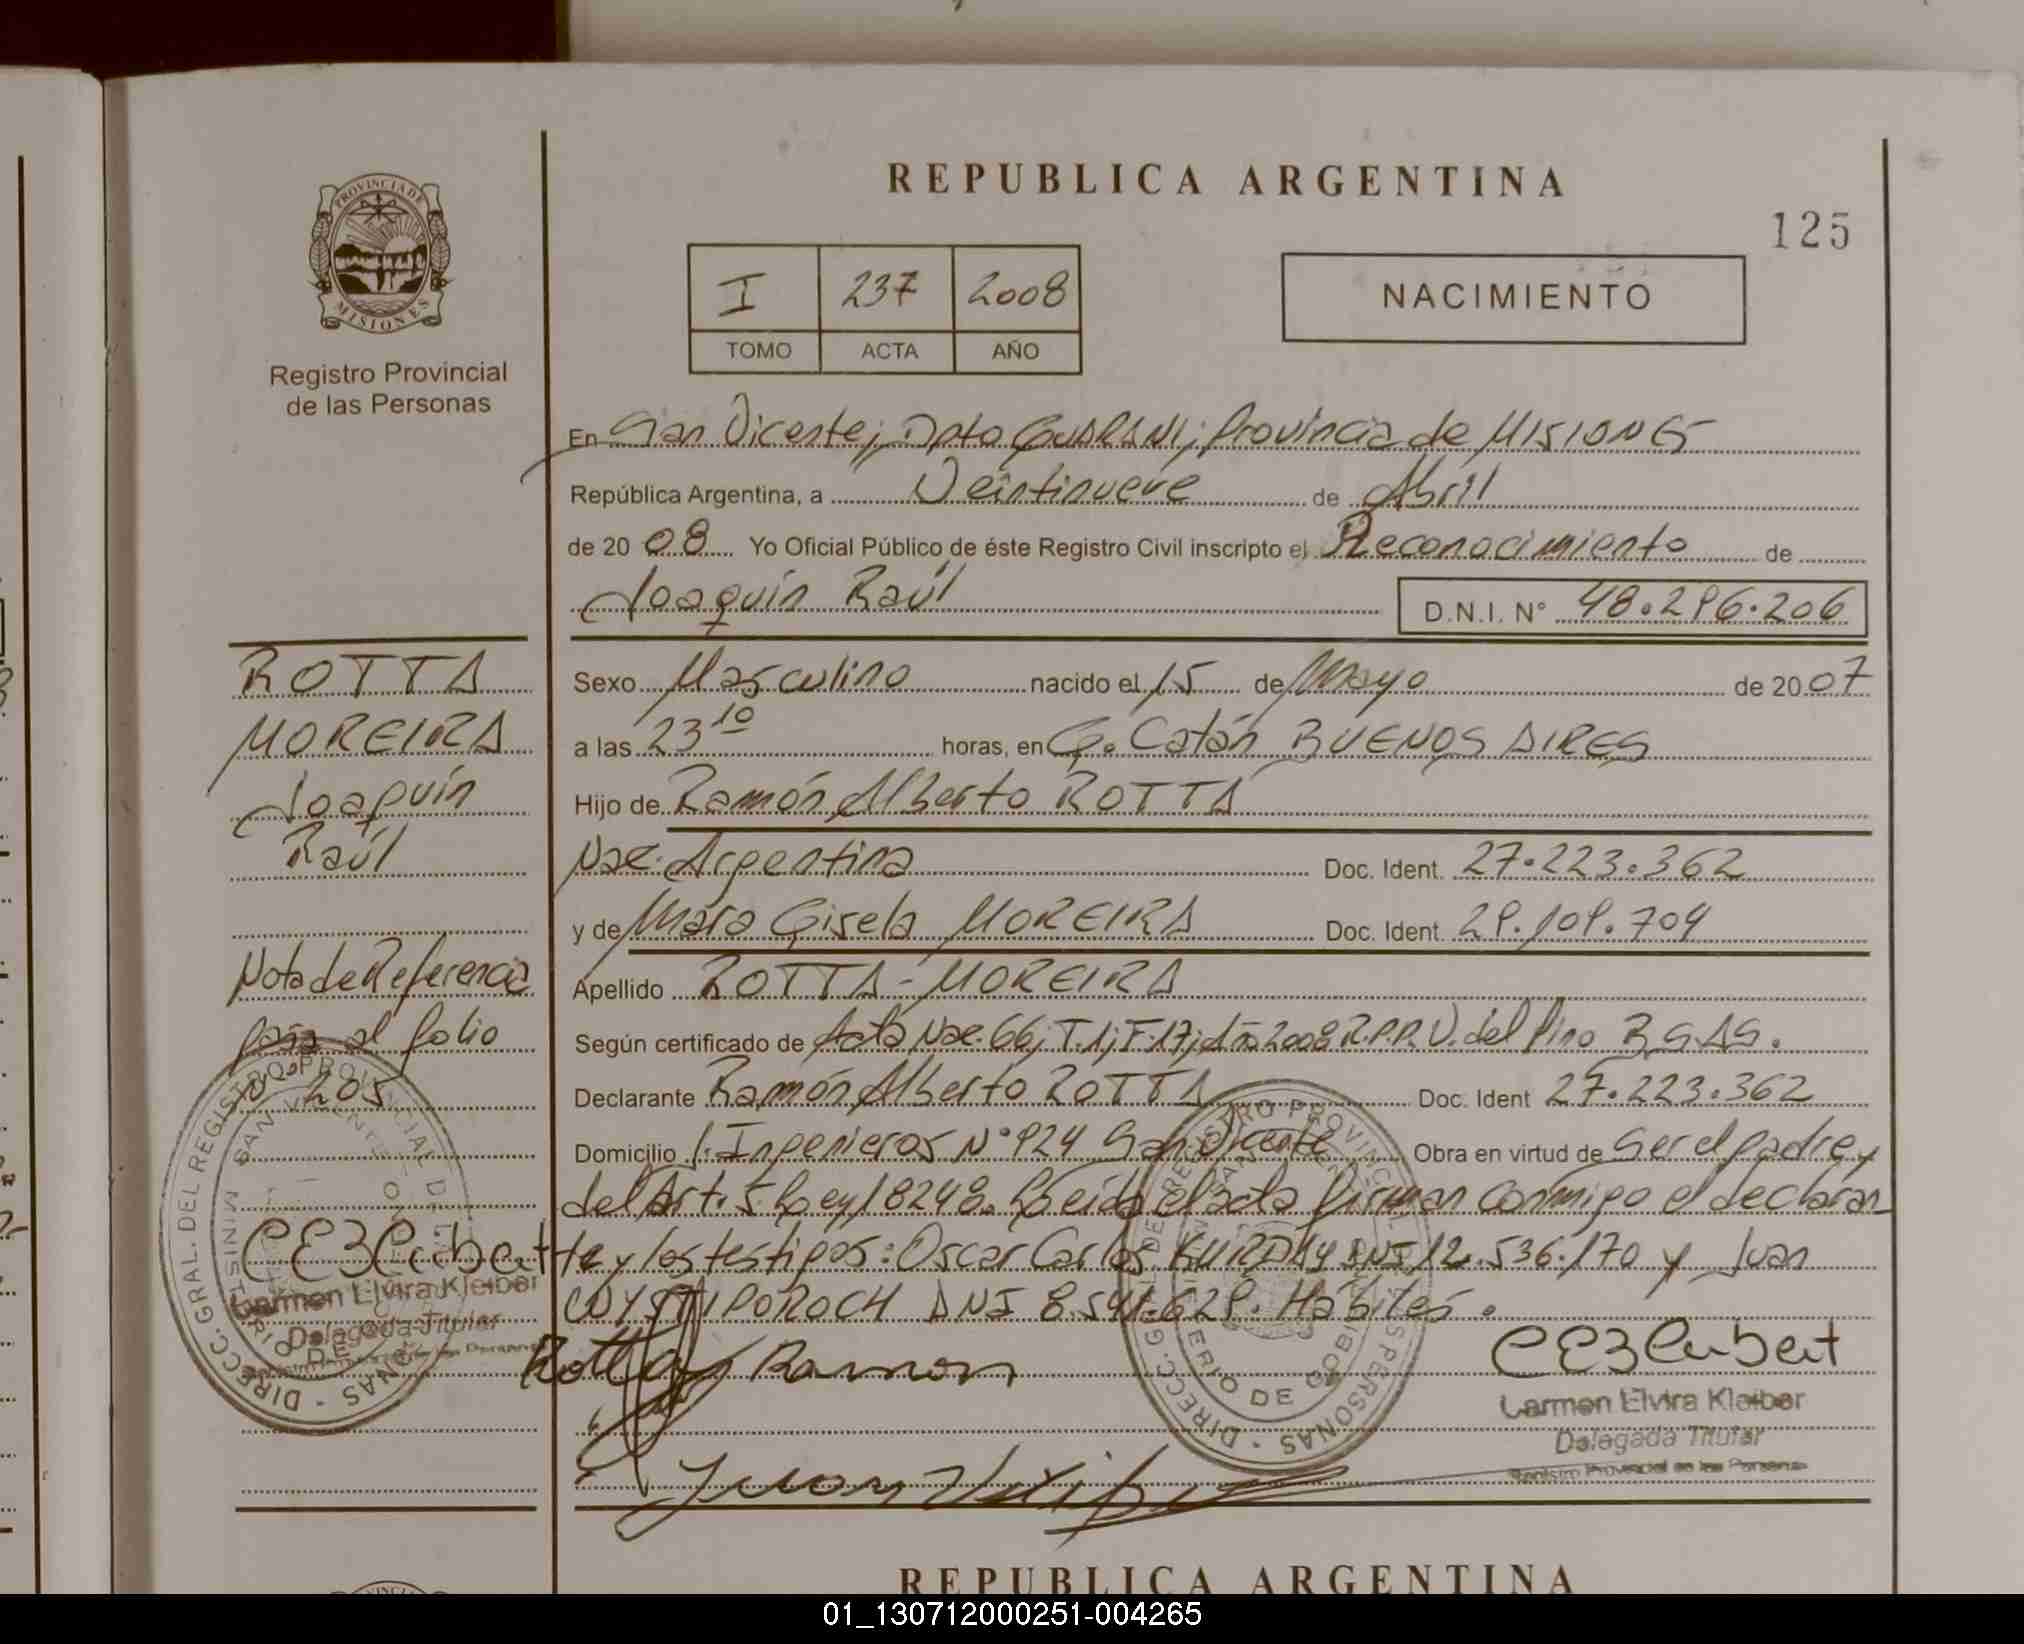 REPUBLICA ARGENTINA
125
PROVINCIA DE
MISIONES
Registro Provincial
de las Personas
I 237 2008
TOMO ACTA AÑO
NACIMIENTO
En San Vicente; Dpto GUARANI; Provincia de MISIONES
República Argentina, a Veintinueve de Abril
de 20 08 Yo Oficial Público de éste Registro Civil inscripto el Reconocimiento de
Joaquín Raúl D.N.I. N° 48.296.206
Sexo Masculino nacido el 15 de Mayo de 20 07
a las 23 10 horas, en G. Catán BUENOS AIRES
Hijo de Ramón Alberto ROTTA
Nac. Argentina Doc. Ident. 27.223.362
y de Mara Gisela MOREIRA Doc. Ident. 29.109.704
Apellido ROTTA - MOREIRA
Según certificado de Acta Nac. 66; T.1; F.17; Año 2008 R.P.P. V. del Pino BS.AS.
Declarante Ramón Alberto ROTTA Doc. Ident 27.223.362
Domicilio J. Ingenieros N° 924 San Vicente Obra en virtud de Ser el padre y
del Art. 5 Ley 18248. Leída el acta firman conmigo el declaran
te y los testigos: Oscar Carlos DNI 12.536.170 y Juan
DNI 8.541.629. Hábiles.
Rotta Ramon
Carmen Elvira Kleiber
Delegada Titular
Registro Provincial de las Personas
ROTTA
MOREIRA
Joaquín
Raúl
Nota de Referencia
pasa al folio
N° 205
Carmen Elvira Kleiber
Delegada Titular
DIRECC. GRAL. DEL REGISTRO PROVINCIAL DE LAS PERSONAS
SAN VICENTE
MINISTERIO DE GOBIERNO
REPUBLICA ARGENTINA
01_130712000251-004265